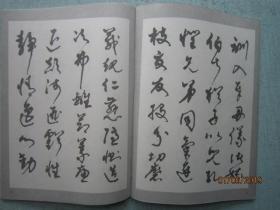 訓入奉母儀諸姑
伯叔猶子比兒孔
懷兄弟同氣連
枝交友投分切磨
箴規仁慈隱惻造
次弗離節義廉
退顛沛匪虧性
靜情逸心動